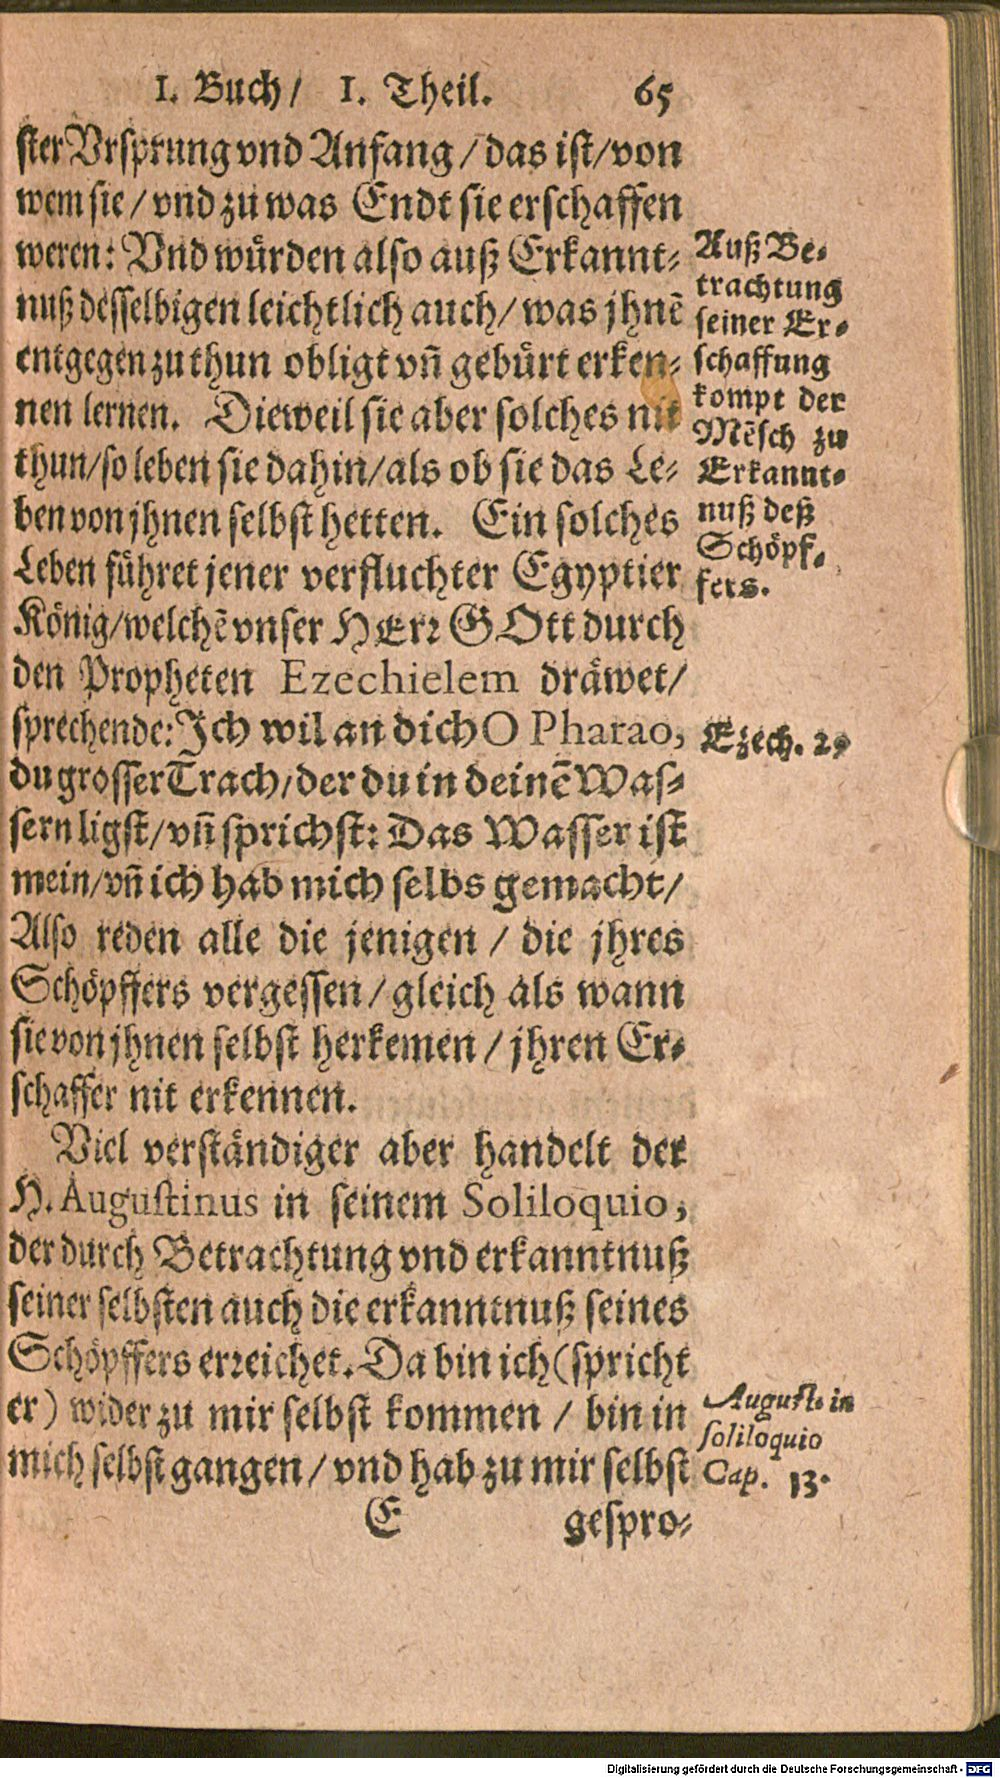 1. Buch/ 1. Theil. 65
ster Vrsprung vnd Anfang/das ist/von
wem sie/vnd zu was Endt sie erschaffen
weren: Vnd würden also auß Erkannt-
nuß desselbigen leichtlich auch/was jhnē
entgegen zu thun obligt vñ gebürt erken-
nen lernen. Dieweil sie aber solches nit
thun/so leben sie dahin/als ob sie das Le-
ben von jhnen selbst hetten. Ein solches
Leben führet jener verfluchter Egyptier
König/welchē vnser HErr GOtt durch
den Propheten Ezechielem dräwet/
sprechende: Ich wil an dich O Pharao,
du grosser Trach/der du in deinē Was-
sern ligst/vñ sprichst: Das Wasser ist
mein/vñ ich hab mich selbs gemacht/
Also reden alle die jenigen/die jhres
Schöpffers vergessen/gleich als wann
sie von jhnen selbst herkemen/jhren Er-
schaffer nit erkennen.
Viel verständiger aber handelt der
H. Augustinus in seinem Soliloquio,
der durch Betrachtung vnd erkanntnuß
seiner selbsten auch die erkanntnuß seines
Schöpffers erreichet. Da bin ich (spricht
er) wider zu mir selbst kommen/bin in
mich selbst gangen/vnd hab zu mir selbst
E gespro-
Auß Be-
trachtung
seiner Er-
schaffung
kompt der
Mēsch zu
Erkannt-
nuß deß
Schöpf-
fers.
Ezech. 29
August. in
soliloquio
Cap. 13.
Digitalisierung gefördert durch die Deutsche Forschungsgemeinschaft - DFG